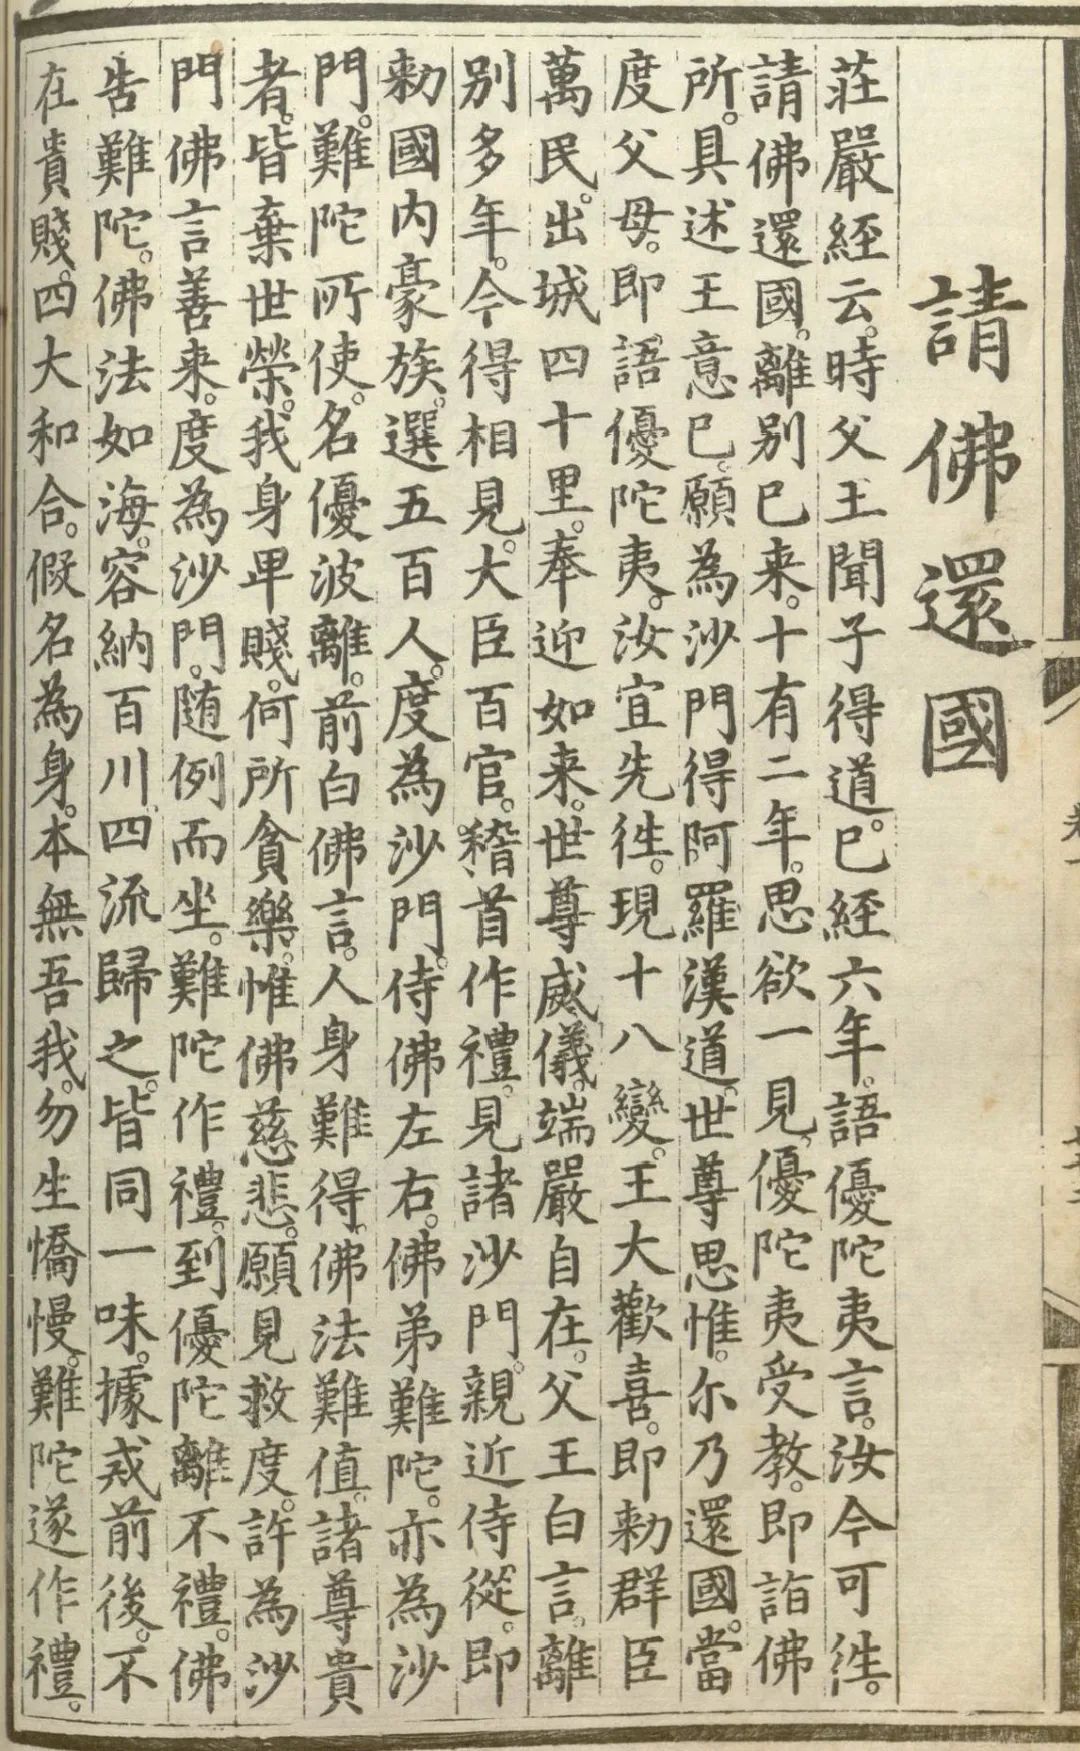 請佛還國
莊嚴經云。時父王聞子得道。已經六年。語優陀夷言。汝今可徃。
請佛還國。離别已来。十有二年。思欲一見。優陀夷受教。即詣佛
所。具述王意已。願為沙門得阿羅漢道。世尊思惟。尔乃還國。當
度父母。即語優陀夷。汝宜先徃。現十八變。王大歡喜。即勑群臣
萬民。出城四十里。奉迎如来。世尊威儀。端嚴自在。父王白言。離
别多年。今得相見。大臣百官。稽首作禮。見諸沙門。親近侍從。即
勑國内豪族。選五百人。度為沙門。侍佛左右。佛弟難陀。亦為沙
門。難陀所使。名優波離。前白佛言。人身難得。佛法難值。諸尊貴
者。皆棄世榮。我身卑賤。何所貪樂。惟佛慈悲。願見救度。許為沙
門佛言善来。度為沙門。随例而坐。難陀作禮。到優陀離不禮。佛
告難陀。佛法如海。容納百川。四流歸之。皆同一味。據戒前後。不
在貴賤。四大和合。假名為身。本無吾我。勿生憍慢。難陀遂作禮。